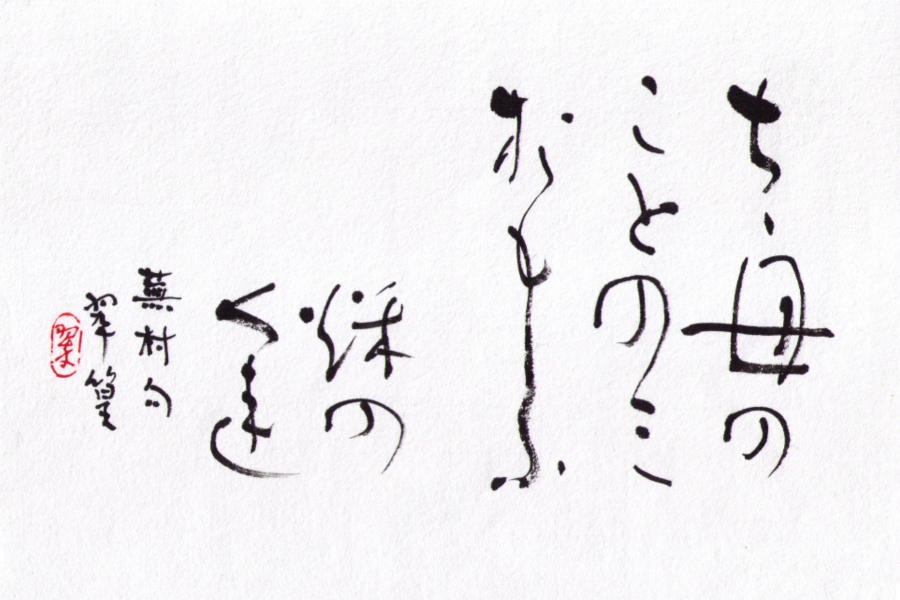 ちゝ母の
ことのミ
おもふ
秌の
く連
蕪村句
翠篁
翠